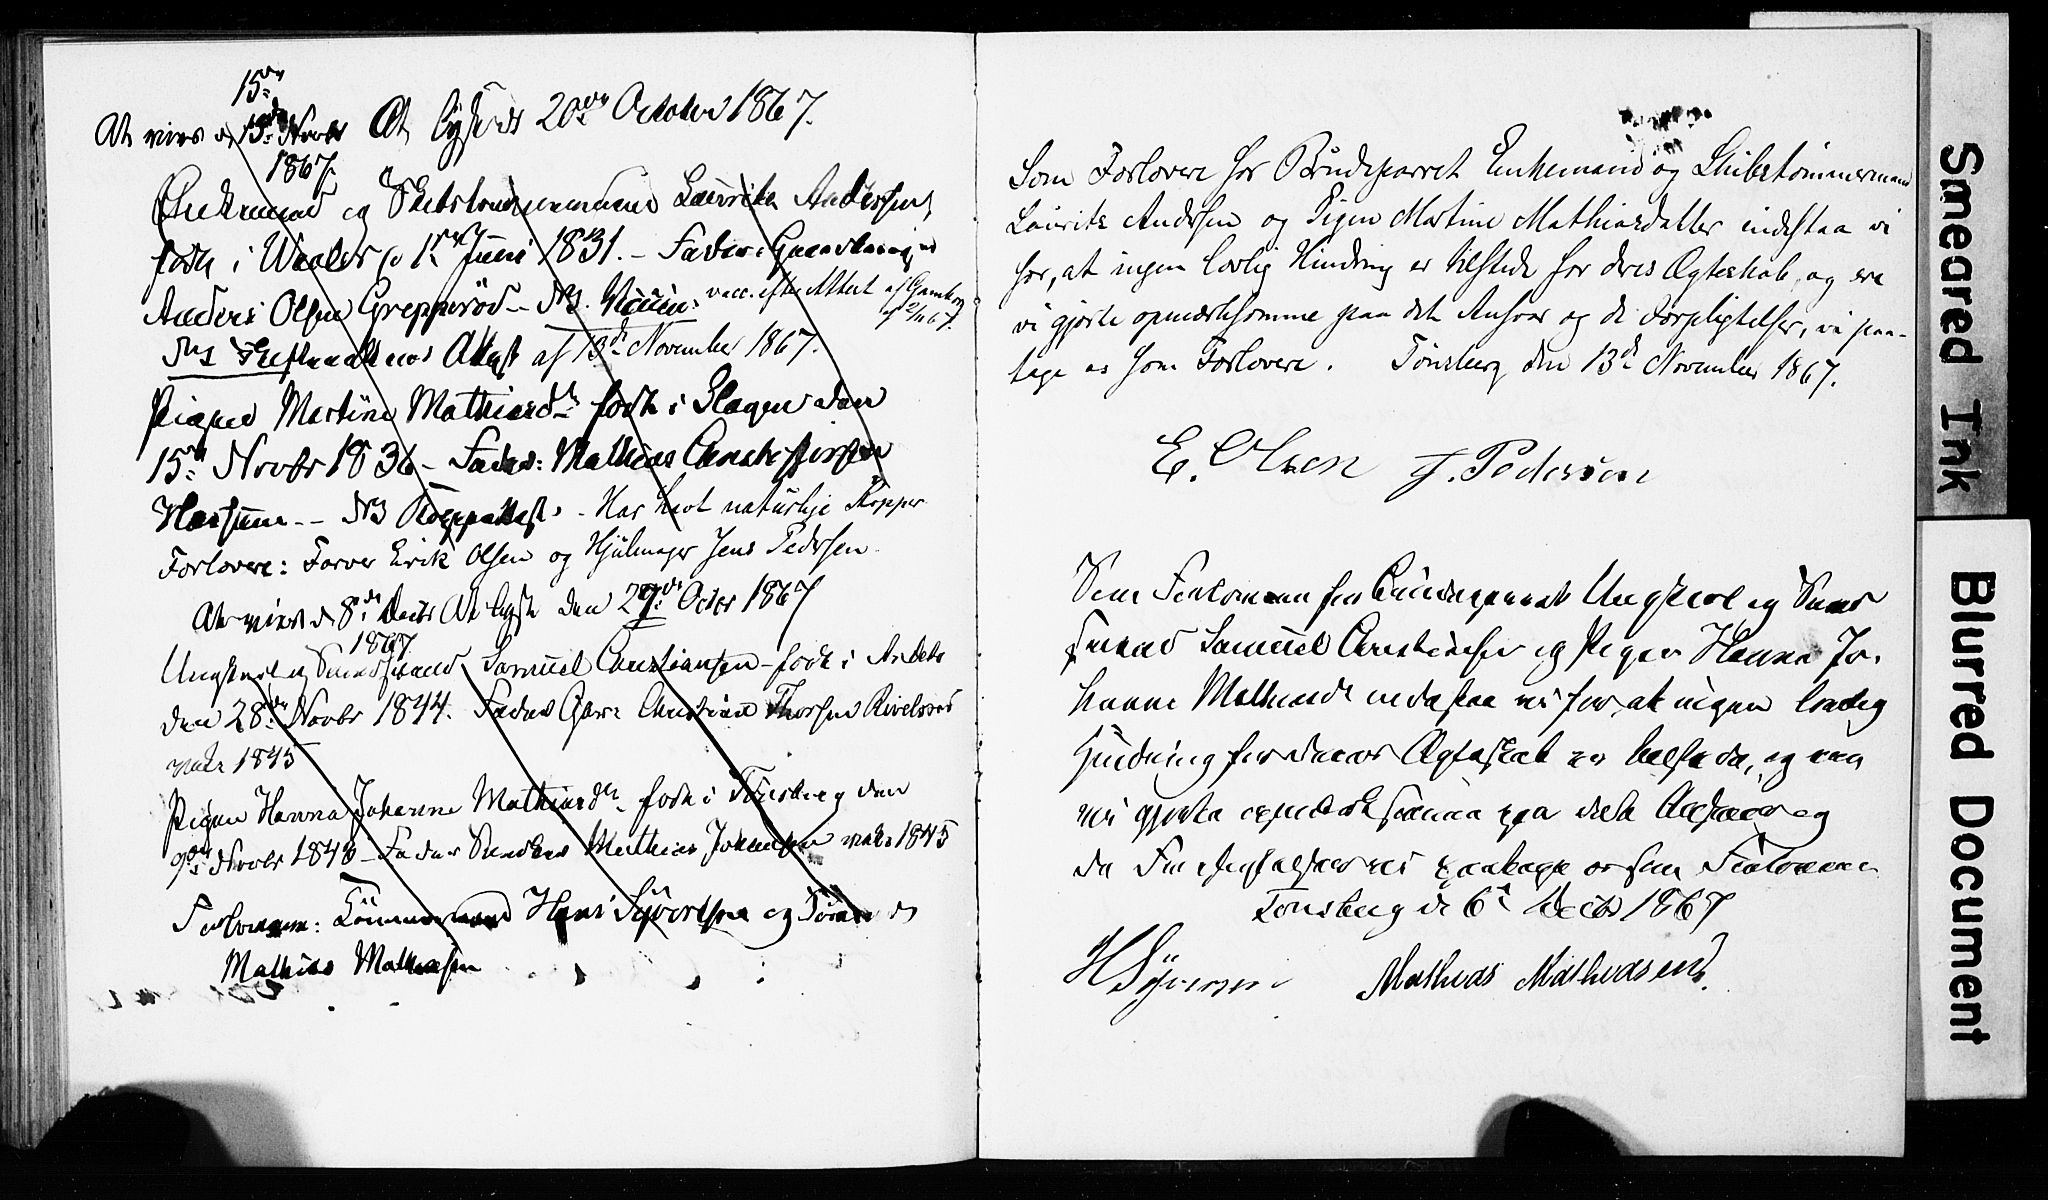 15de
At vies d. 15de Novbr At lyses 20de October 1867.
1867
Enkemand og Skibstømmermand Lauritz Andersen,
født i Waaler p 1ste Juni 1831. - Fader: Gaardbruger
Anders Olsen Greppröd - NB. Vaccin: vacc. efter Attest af
NB Skiftevæsenets Attest af 13de November 1867.
Pigen Martine Mathiasdr født i Slagen den
15de Novbr 1836 - Fader: Mathias Christophersen
NB Koppeattest. - Har havt naturlige Kopper
Forlovere: Farver Erik Olsen og Hjulmager Jens Pedersen.
At vies d 8de Decbr At lyse den 27de Octbr 1867
1867
Ungkarl og Smedsvend Samuel Christiansen - født i Andebo
den 28de Novbr 1844. Fader Christian Thorsen
vacc 1845
Pigen Hanna Johanne Mathiasdr født i Tönsberg den
9de Novbr 1843 - Fader Mathias Johansen vacc 1845
Forlovere: Tömmermand Hans og
Mathias Mathiasen
Som Forlovere for Brudeparret Enkemand og Skibstömmermand
Laurits Andersen og Pigen Martine Mathiasdatter indestaa vi
for, at ingen lovlig Hindring er tilstede for deres Ægteskab, og ere
vi gjorte opmærksomme paa det Ansvar og de Forpligtelser, vi paa-
tage os som Forlovere. Tönsberg den 13de November 1867.
E. Olsen J. Pedersen
Som Forlovere for Brudeparret Ungkarl og Smed
svend Samuel Christiansen og Pigen Hanna Jo-
hanne Mathiasdr indestaa vi for, at ingen lovlig
Hindring for deres Ægteskab er tilstede, og ere
vi gjorte opmærksomme paa det Ansvar og
de Forpligtelser vi paatage os som Forlovere
Tönsberg d 6te Decbr 1867
Mathias Mathiasen.
Smeared Ink
Blurred Document